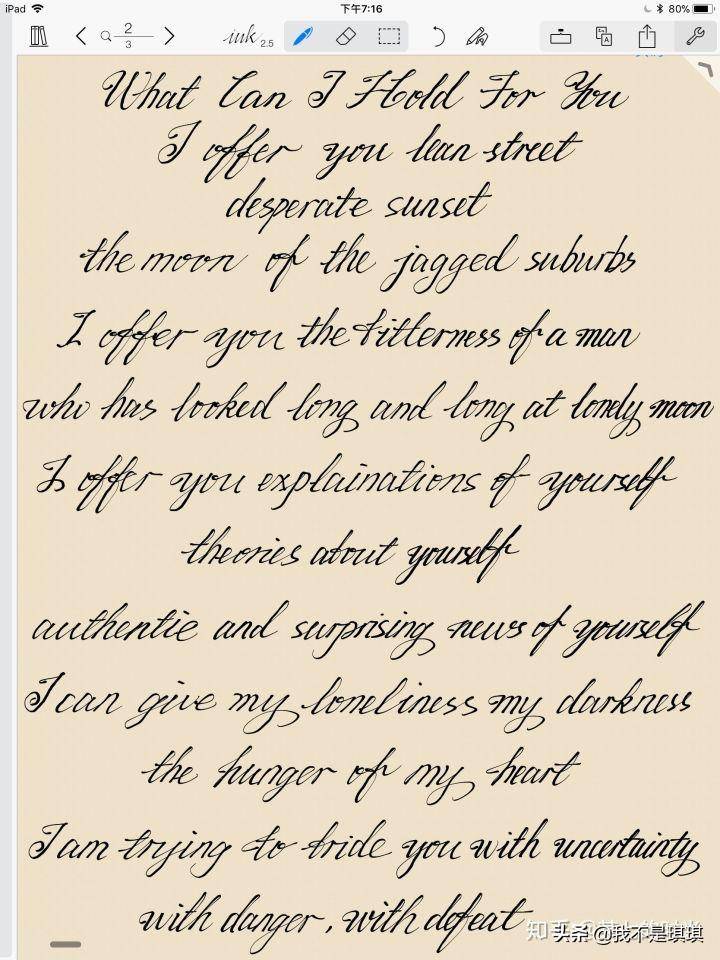 iPad 下午7:16 80%
2
3
ink 2.5
What Can I Hold For You
I offer you lean street
desperate sunset
the moon of the jagged suburbs
I offer you the bitterness of a man
who has looked long and long at lonely moon
I offer you explainations of yourself
theories about yourself
authentie and surprising news of yourself
I can give my loneliness my darkness
the hunger of my heart
I am trying to bride you with uncertainty
with danger, with defeat
知乎
头条 @我不是琪琪